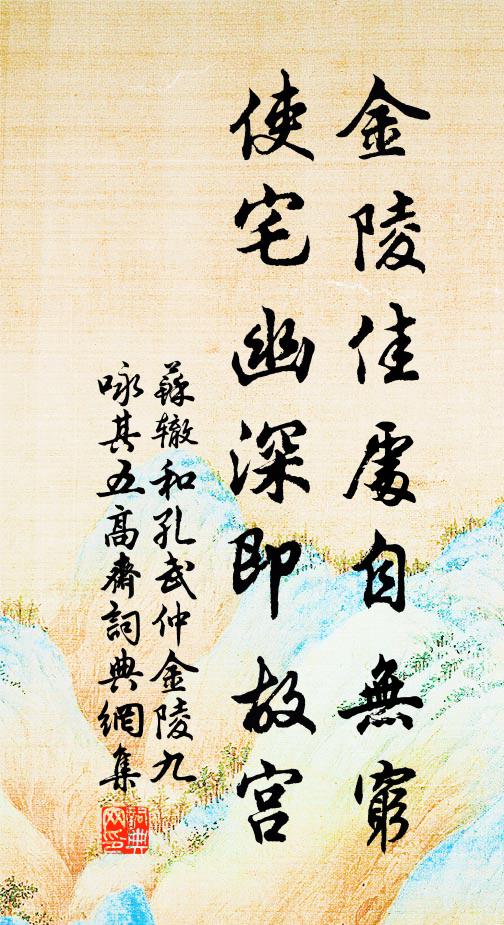 金陵佳處自無窮
使宅幽深即故宮
蘇轍和孔武仲金陵九
咏其五高齋詞典網集
詞典網印